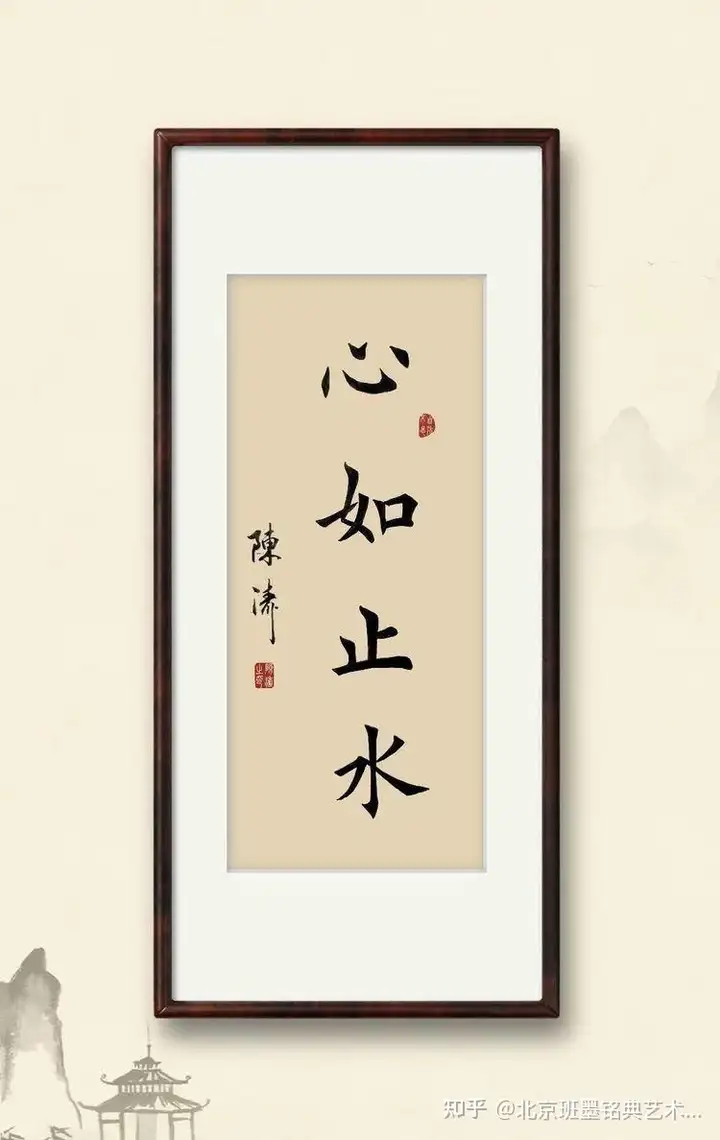 心如止水
陳濤
知乎 @北京班墨铭典艺术...